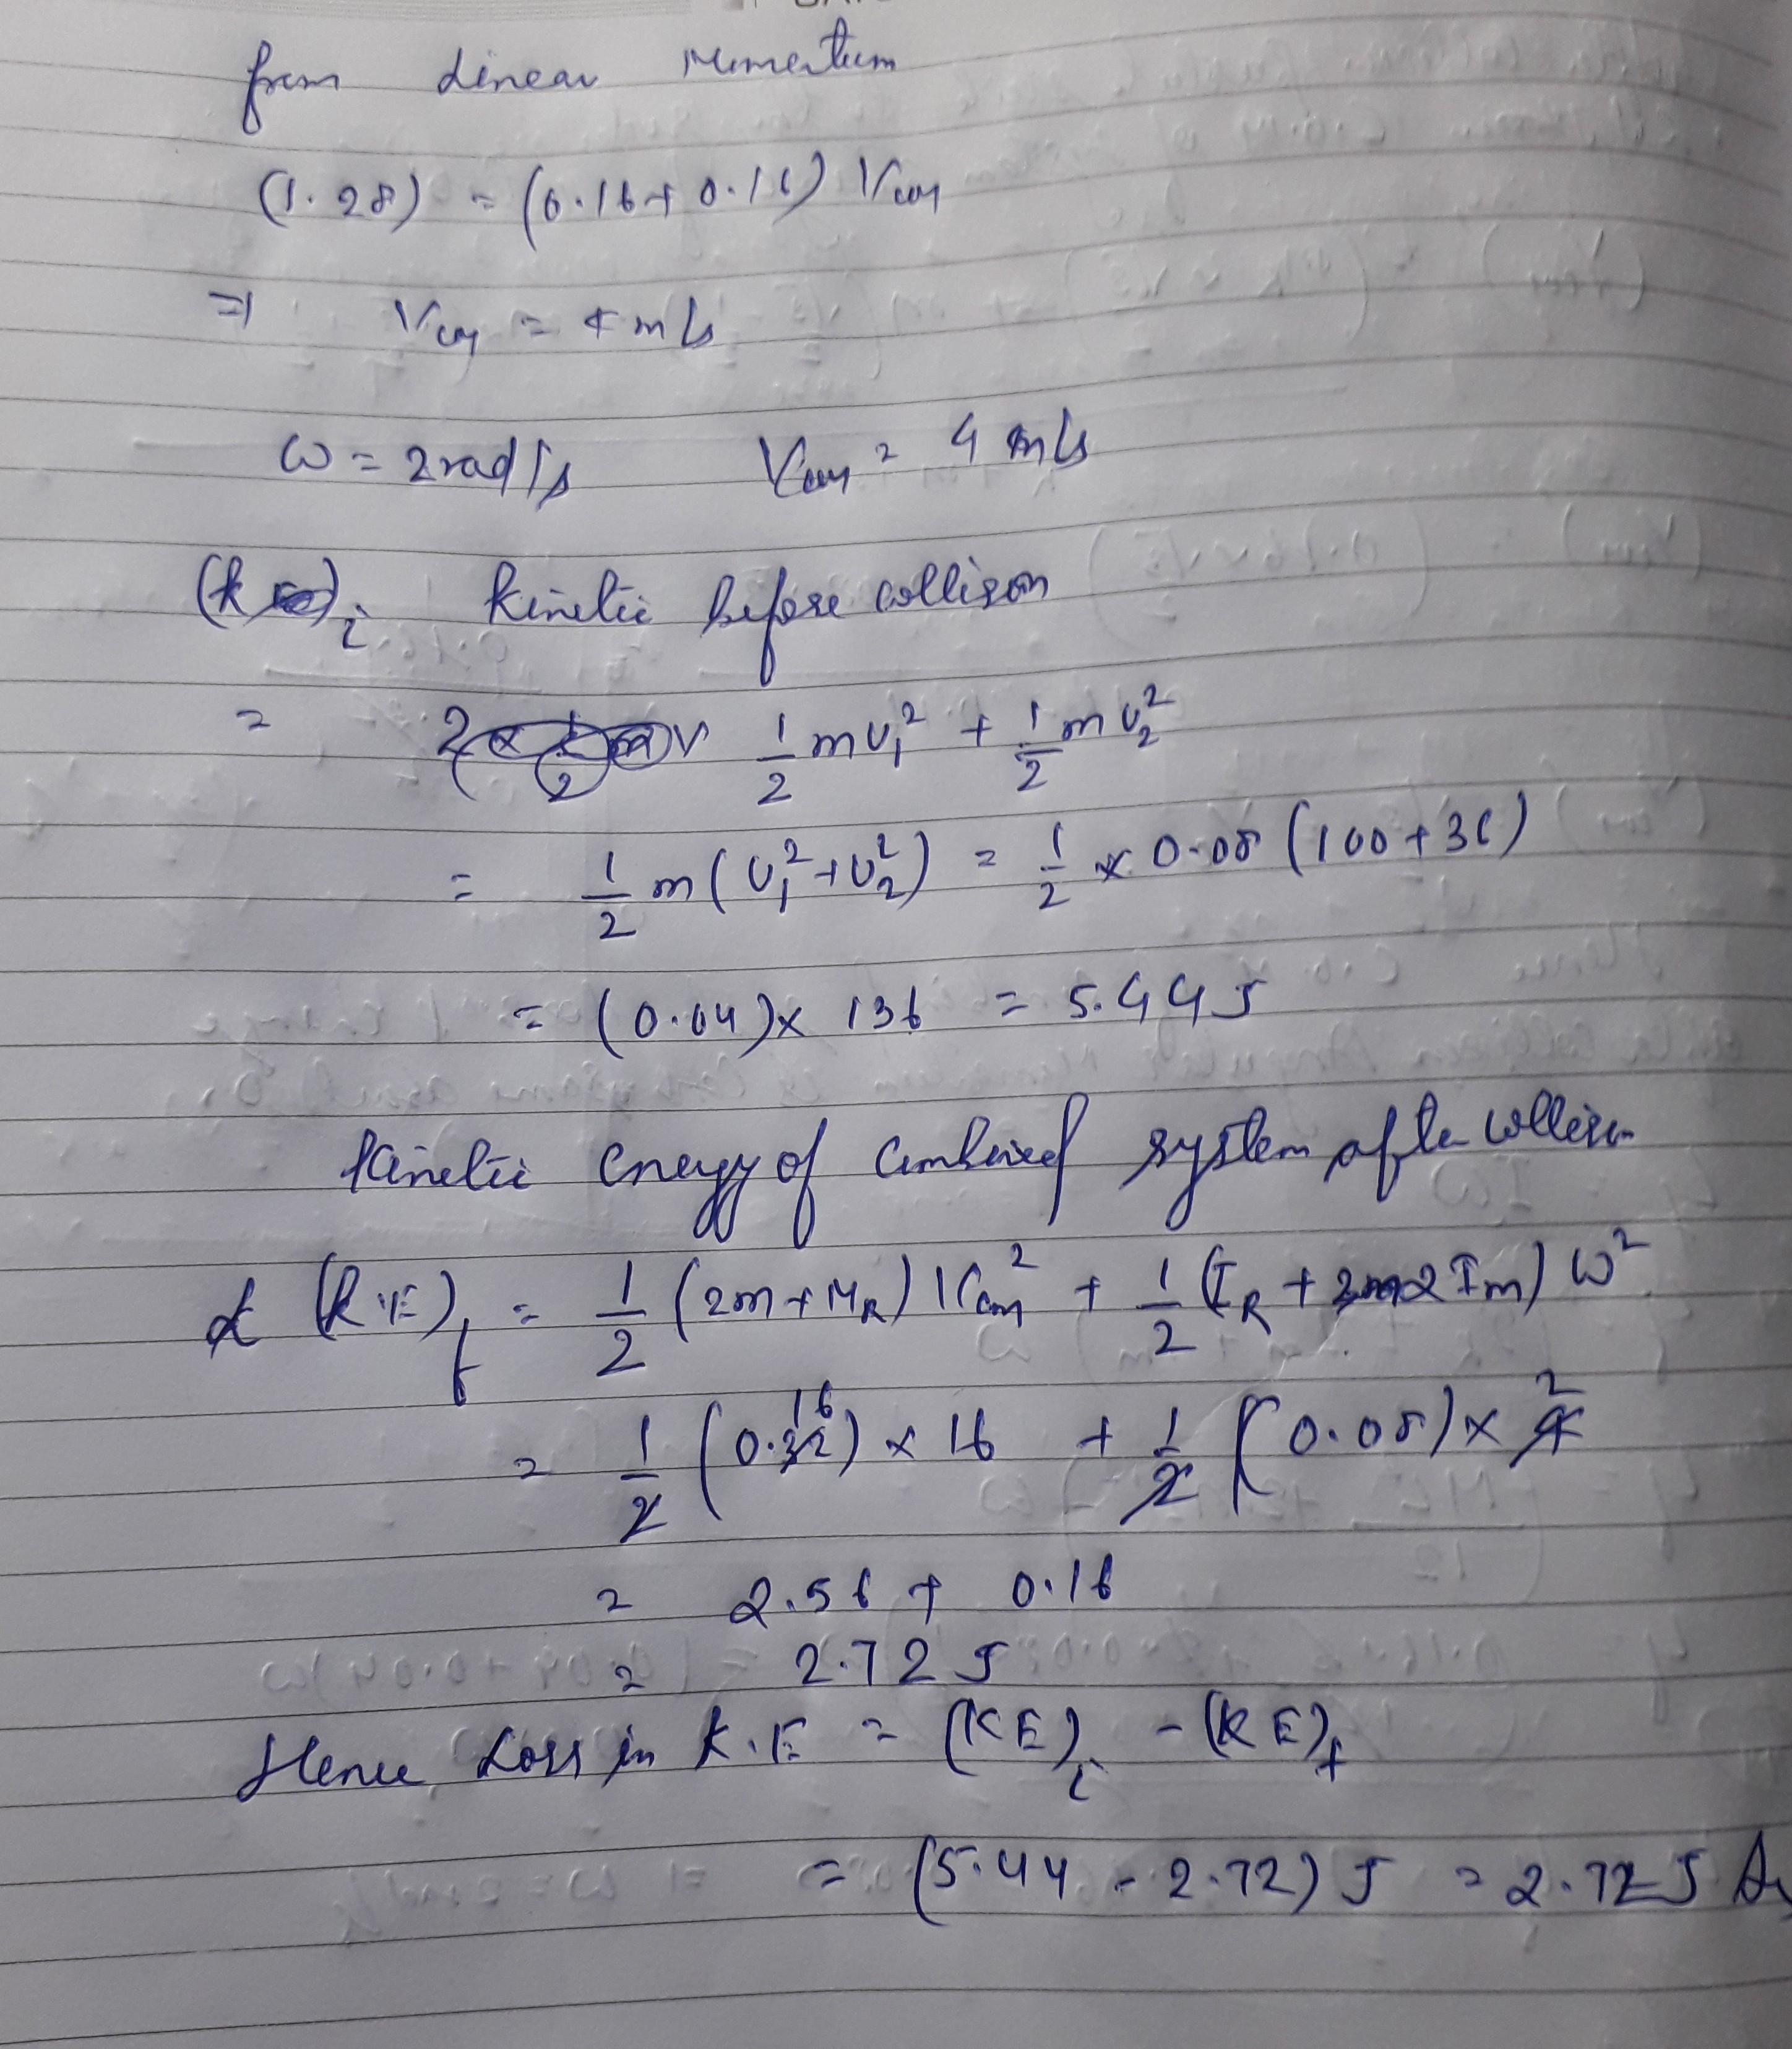 from Linear Momentum
(1.28) = (0.16+0.16) Vcm
⇒ Vcm = 4 m/s
ω = 2rad/s Vcm = 4 m/s
(k )i kinetic before collison
= 1/2 mv₁² + 1/2 mv₂²
= 1/2 m(v₁²+v₂²) = 1/2 × 0.08 (100+36)
= (0.04)× 136 = 5.44J
kinetic energy of combined system after collison
(K.E)f = 1/2 (2m+MR) Vcm² + 1/2 (IR + 2Im) ω²
= 1/2 (0.32) × 16 + 1/2 (0.08)× 4
= 2.56 + 0.16
= 2.72 J
Hence Loss in K.E = (KE)i - (KE)f
= (5.44 - 2.72) J = 2.72 J